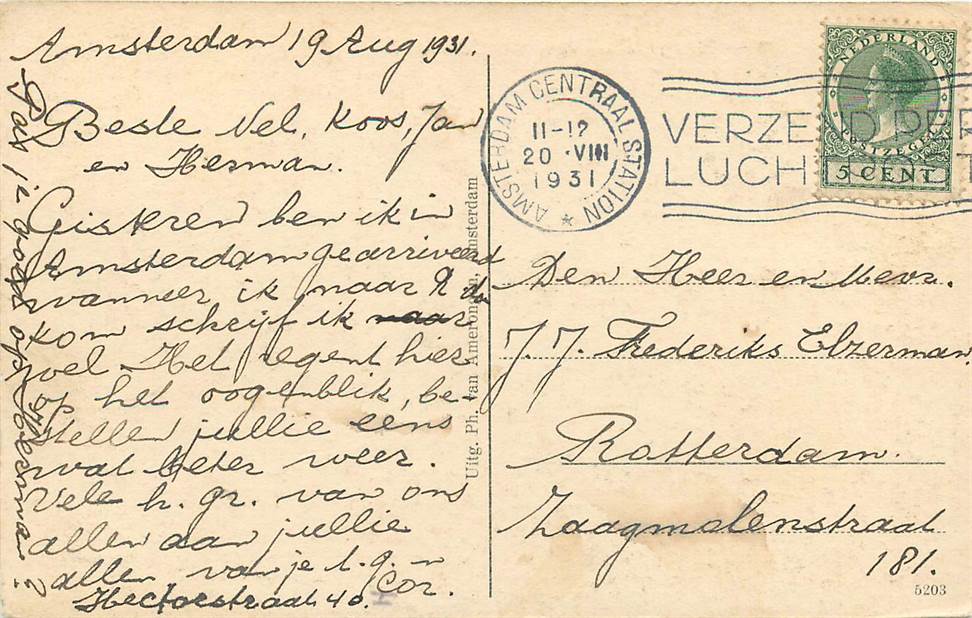 Amsterdam 19 Aug 1931.
Beste Nel, Koos, Jan
en Herman.
Gisteren ben ik in
Amsterdam gearriveerd
wanneer ik naar R dam
kom schrijf ik naar
wel Het regent hier
op het oogenblik, be-
stellen jullie eens
wat beter weer.
Vele h. gr. van ons
allen aan jullie
allen van je t.g.n
Cor.
Hectorstraat 40.
Pas je goed op Herman?
Uitg. Ph. van Amerongen, Amsterdam
AMSTERDAM CENTRAAL STATION
11-12
20 VIII
1931
VERZEND PER
LUCHTPOST
NEDERLAND
POSTZEGEL
5 CENT
Den Heer en Mevr.
J. J. Frederiks Elzerman
Rotterdam.
Zaagmolenstraat
181.
5203